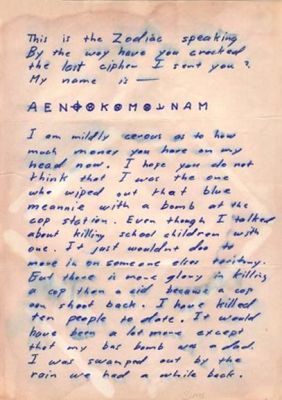 This is the Zodiac speaking
By the way have you cracked
the last cipher I sent you?
My name is —
A E N ⌖ ⊗ K ⊗ M ⊗ ⅃ N A M
I am mildly cerous as to how
much money you have on my
head now. I hope you do not
think that I was the one
who wiped out that blue
meannie with a bomb at the
cop station. Even though I talked
about killing school children with
one. It just wouldnt doo to
move in on someone elses teritory.
But there is more glory in killing
a cop then a cid because a cop
can shoot back. I have killed
ten people to date. It would
have been a lot more except
that my bus bomb was a dud.
I was swamped out by the
rain we had a while back.